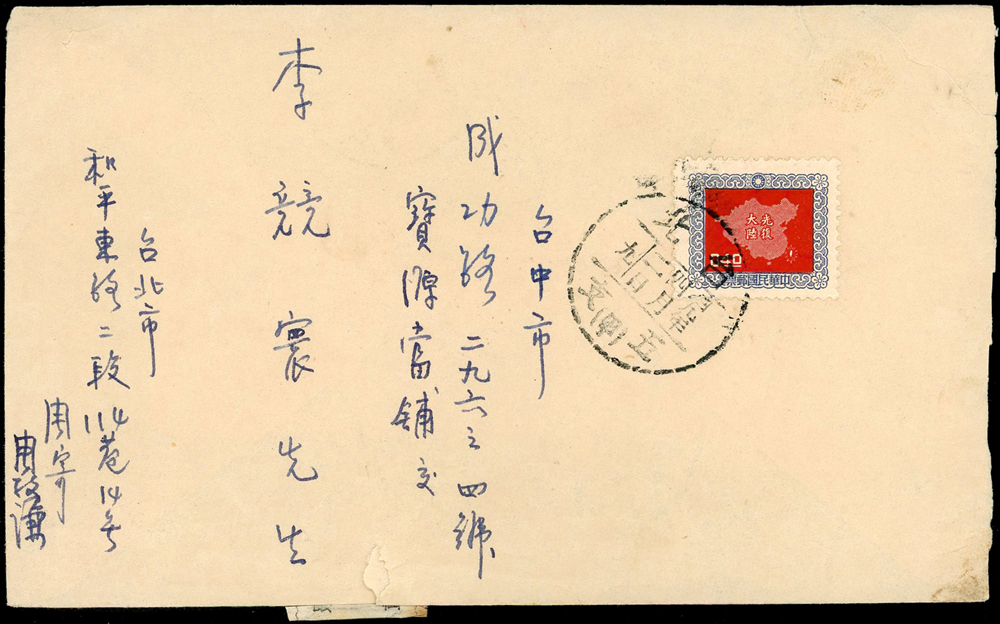 台中市
成功路二九六之四號
寶源當舖交
李競寰先生
台北市
和平東路二段114巷14号
周寄
周政謙
光復
大陸
中華民國郵票
台北
二月
九日